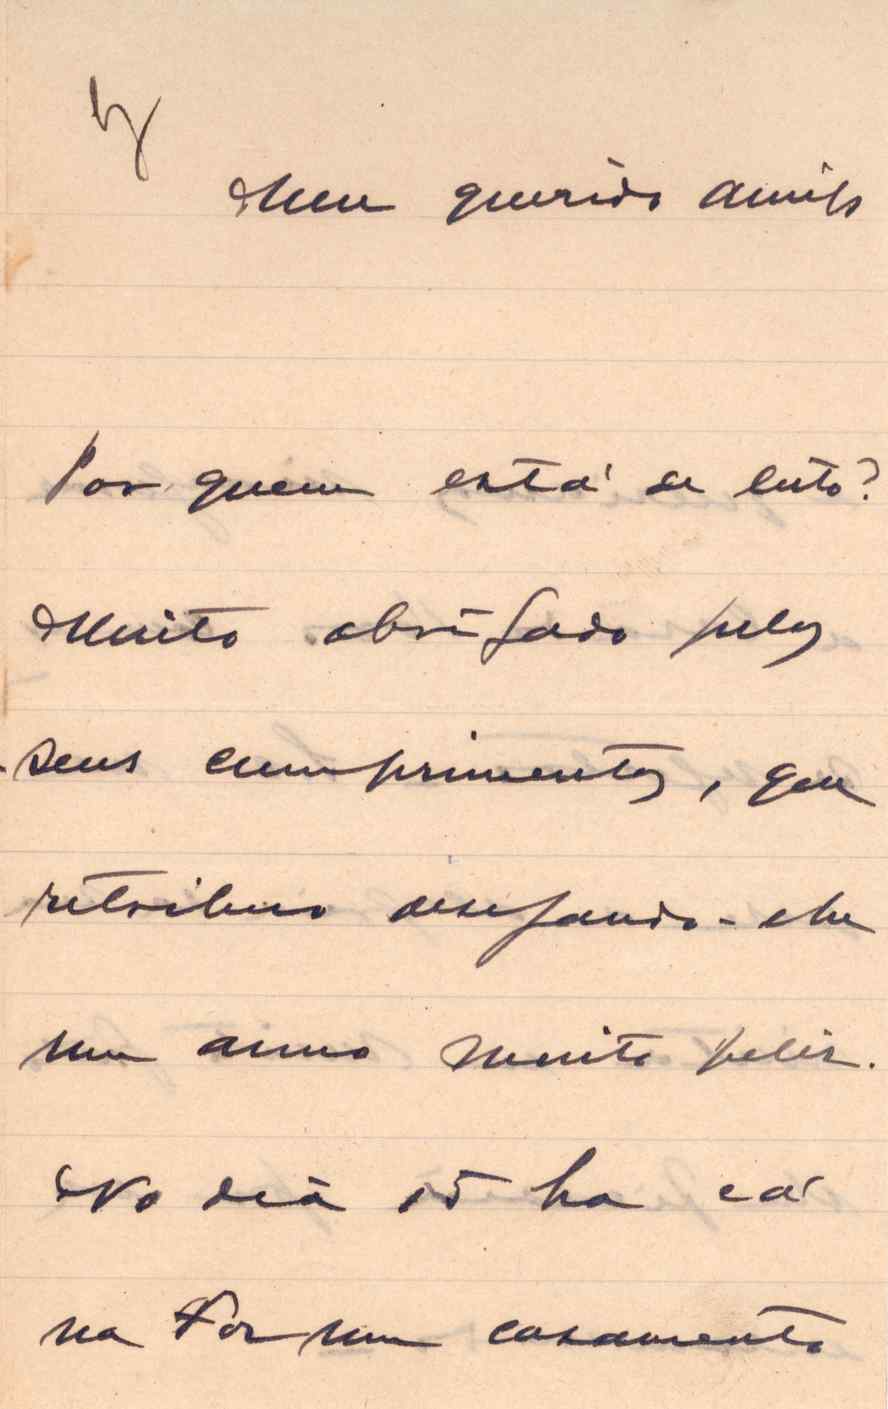 Meu querido amigo
Por quem está de luto?
Muito obrigado pelos
seus cumprimentos, que
retribuo desejando-lhe
um anno muito feliz.
No dia 15 ha cá
na Foz um casamento